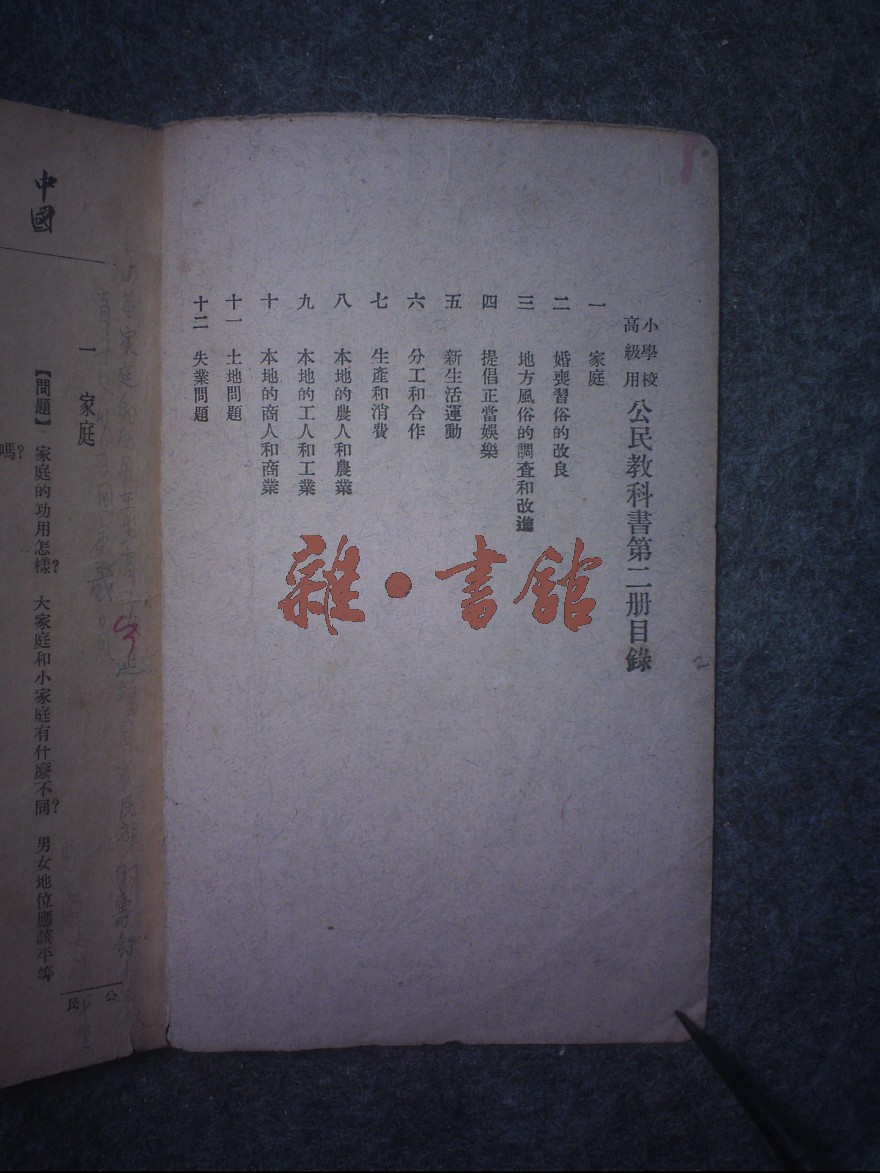 小學校
高級用
公民教科書第二册目錄
一　家庭
二　婚喪習俗的改良
三　地方風俗的調查和改進
四　提倡正當娛樂
五　新生活運動
六　分工和合作
七　生產和消費
八　本地的農人和農業
九　本地的工人和工業
十　本地的商人和商業
十一　土地問題
十二　失業問題
雜·書館
2
中國
一　家庭
【問題】　家庭的功用怎樣？　大家庭和小家庭有什麼不同？　男女地位應該平等
嗎？
公民